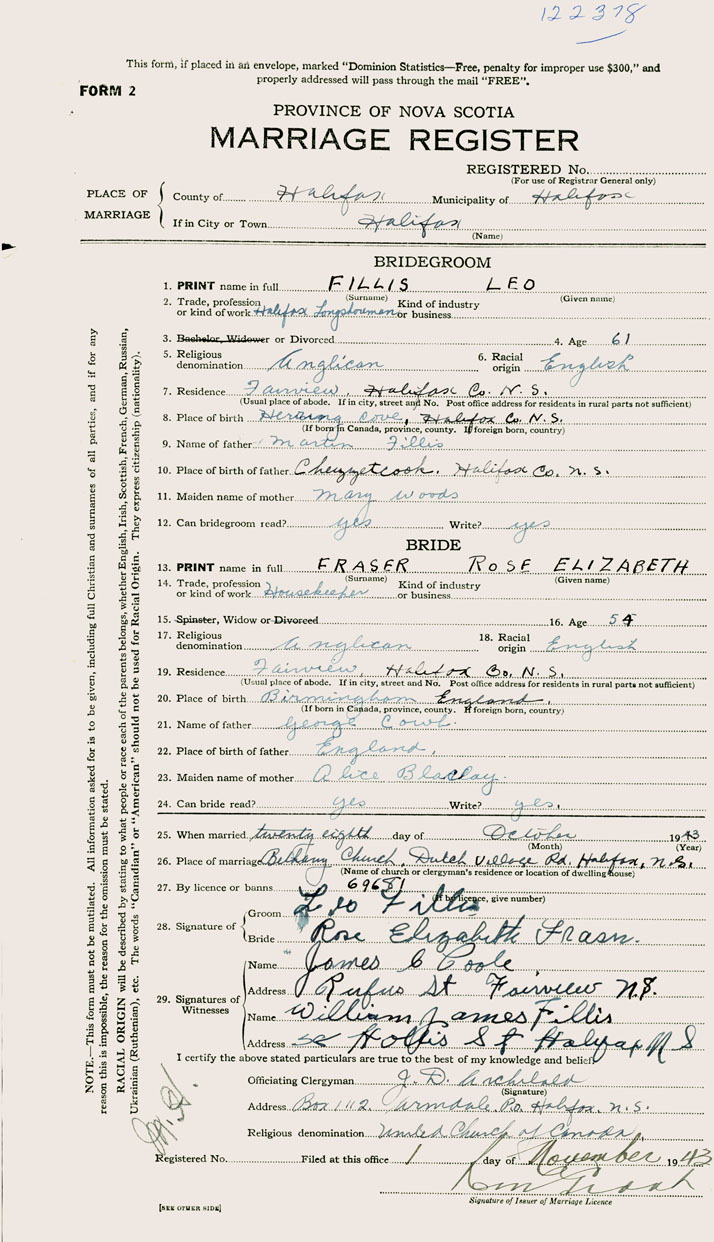 122378
This form, if placed in an envelope, marked "Dominion Statistics—Free, penalty for improper use $300," and
properly addressed will pass through the mail "FREE".
FORM 2
PROVINCE OF NOVA SCOTIA
MARRIAGE REGISTER
REGISTERED No.
(For use of Registrar General only)
PLACE OF MARRIAGE
County of Halifax Municipality of Halifax
If in City or Town Halifax
(Name)
BRIDEGROOM
1. PRINT name in full FILLIS LEO
(Surname) (Given name)
2. Trade, profession or kind of work Halifax Longshoreman Kind of industry or business
3. Bachelor, Widower or Divorced 4. Age 61
5. Religious denomination Anglican 6. Racial origin English
7. Residence Fairview, Halifax Co. N. S.
(Usual place of abode. If in city, street and No. Post office address for residents in rural parts not sufficient)
8. Place of birth Herring Cove, Halifax Co. N.S.
(If born in Canada, province, county. If foreign born, country)
9. Name of father Martin Fillis
10. Place of birth of father Chezzetcook. Halifax Co. N. S.
11. Maiden name of mother Mary Woods
12. Can bridegroom read? yes Write? yes
BRIDE
13. PRINT name in full FRASER ROSE ELIZABETH
(Surname) (Given name)
14. Trade, profession or kind of work Housekeeper Kind of industry or business
15. Spinster, Widow or Divorced 16. Age 54
17. Religious denomination Anglican 18. Racial origin English
19. Residence Fairview Halifax Co. N. S.
(Usual place of abode. If in city, street and No. Post office address for residents in rural parts not sufficient)
20. Place of birth Birmingham England.
(If born in Canada, province, county. If foreign born, country)
21. Name of father George
22. Place of birth of father England.
23. Maiden name of mother Alice
24. Can bride read? yes Write? yes.
25. When married twenty eighth day of October 1943
(Month) (Year)
26. Place of marriage Bethany Church, Dutch Village Rd. Halifax, N.S.
(Name of church or clergyman's residence or location of dwelling house)
27. By licence or banns 69681
(If by licence, give number)
28. Signature of
Groom Leo Fillis
Bride Rose Elizabeth Fraser.
29. Signatures of Witnesses
Name James C Poole
Address Rufus St Fairview N.S.
Name William James Fillis
Address Hollis St Halifax N S
I certify the above stated particulars are true to the best of my knowledge and belief.
Officiating Clergyman J. D. Archibald
(Signature)
Address Box 1112. Armdale P.O. Halifax. N. S.
Religious denomination United Church of Canada
Registered No. Filed at this office 1 day of November 1943
Signature of Issuer of Marriage Licence
[SEE OTHER SIDE]
NOTE.—This form must not be mutilated. All information asked for is to be given, including full Christian and surnames of all parties, and if for any
reason this is impossible, the reason for the omission must be stated.
RACIAL ORIGIN will be described by stating to what people or race each of the parents belongs, whether English, Irish, Scottish, French, German, Russian,
Ukrainian (Ruthenian), etc. The words "Canadian" or "American" should not be used for Racial Origin. They express citizenship (nationality).